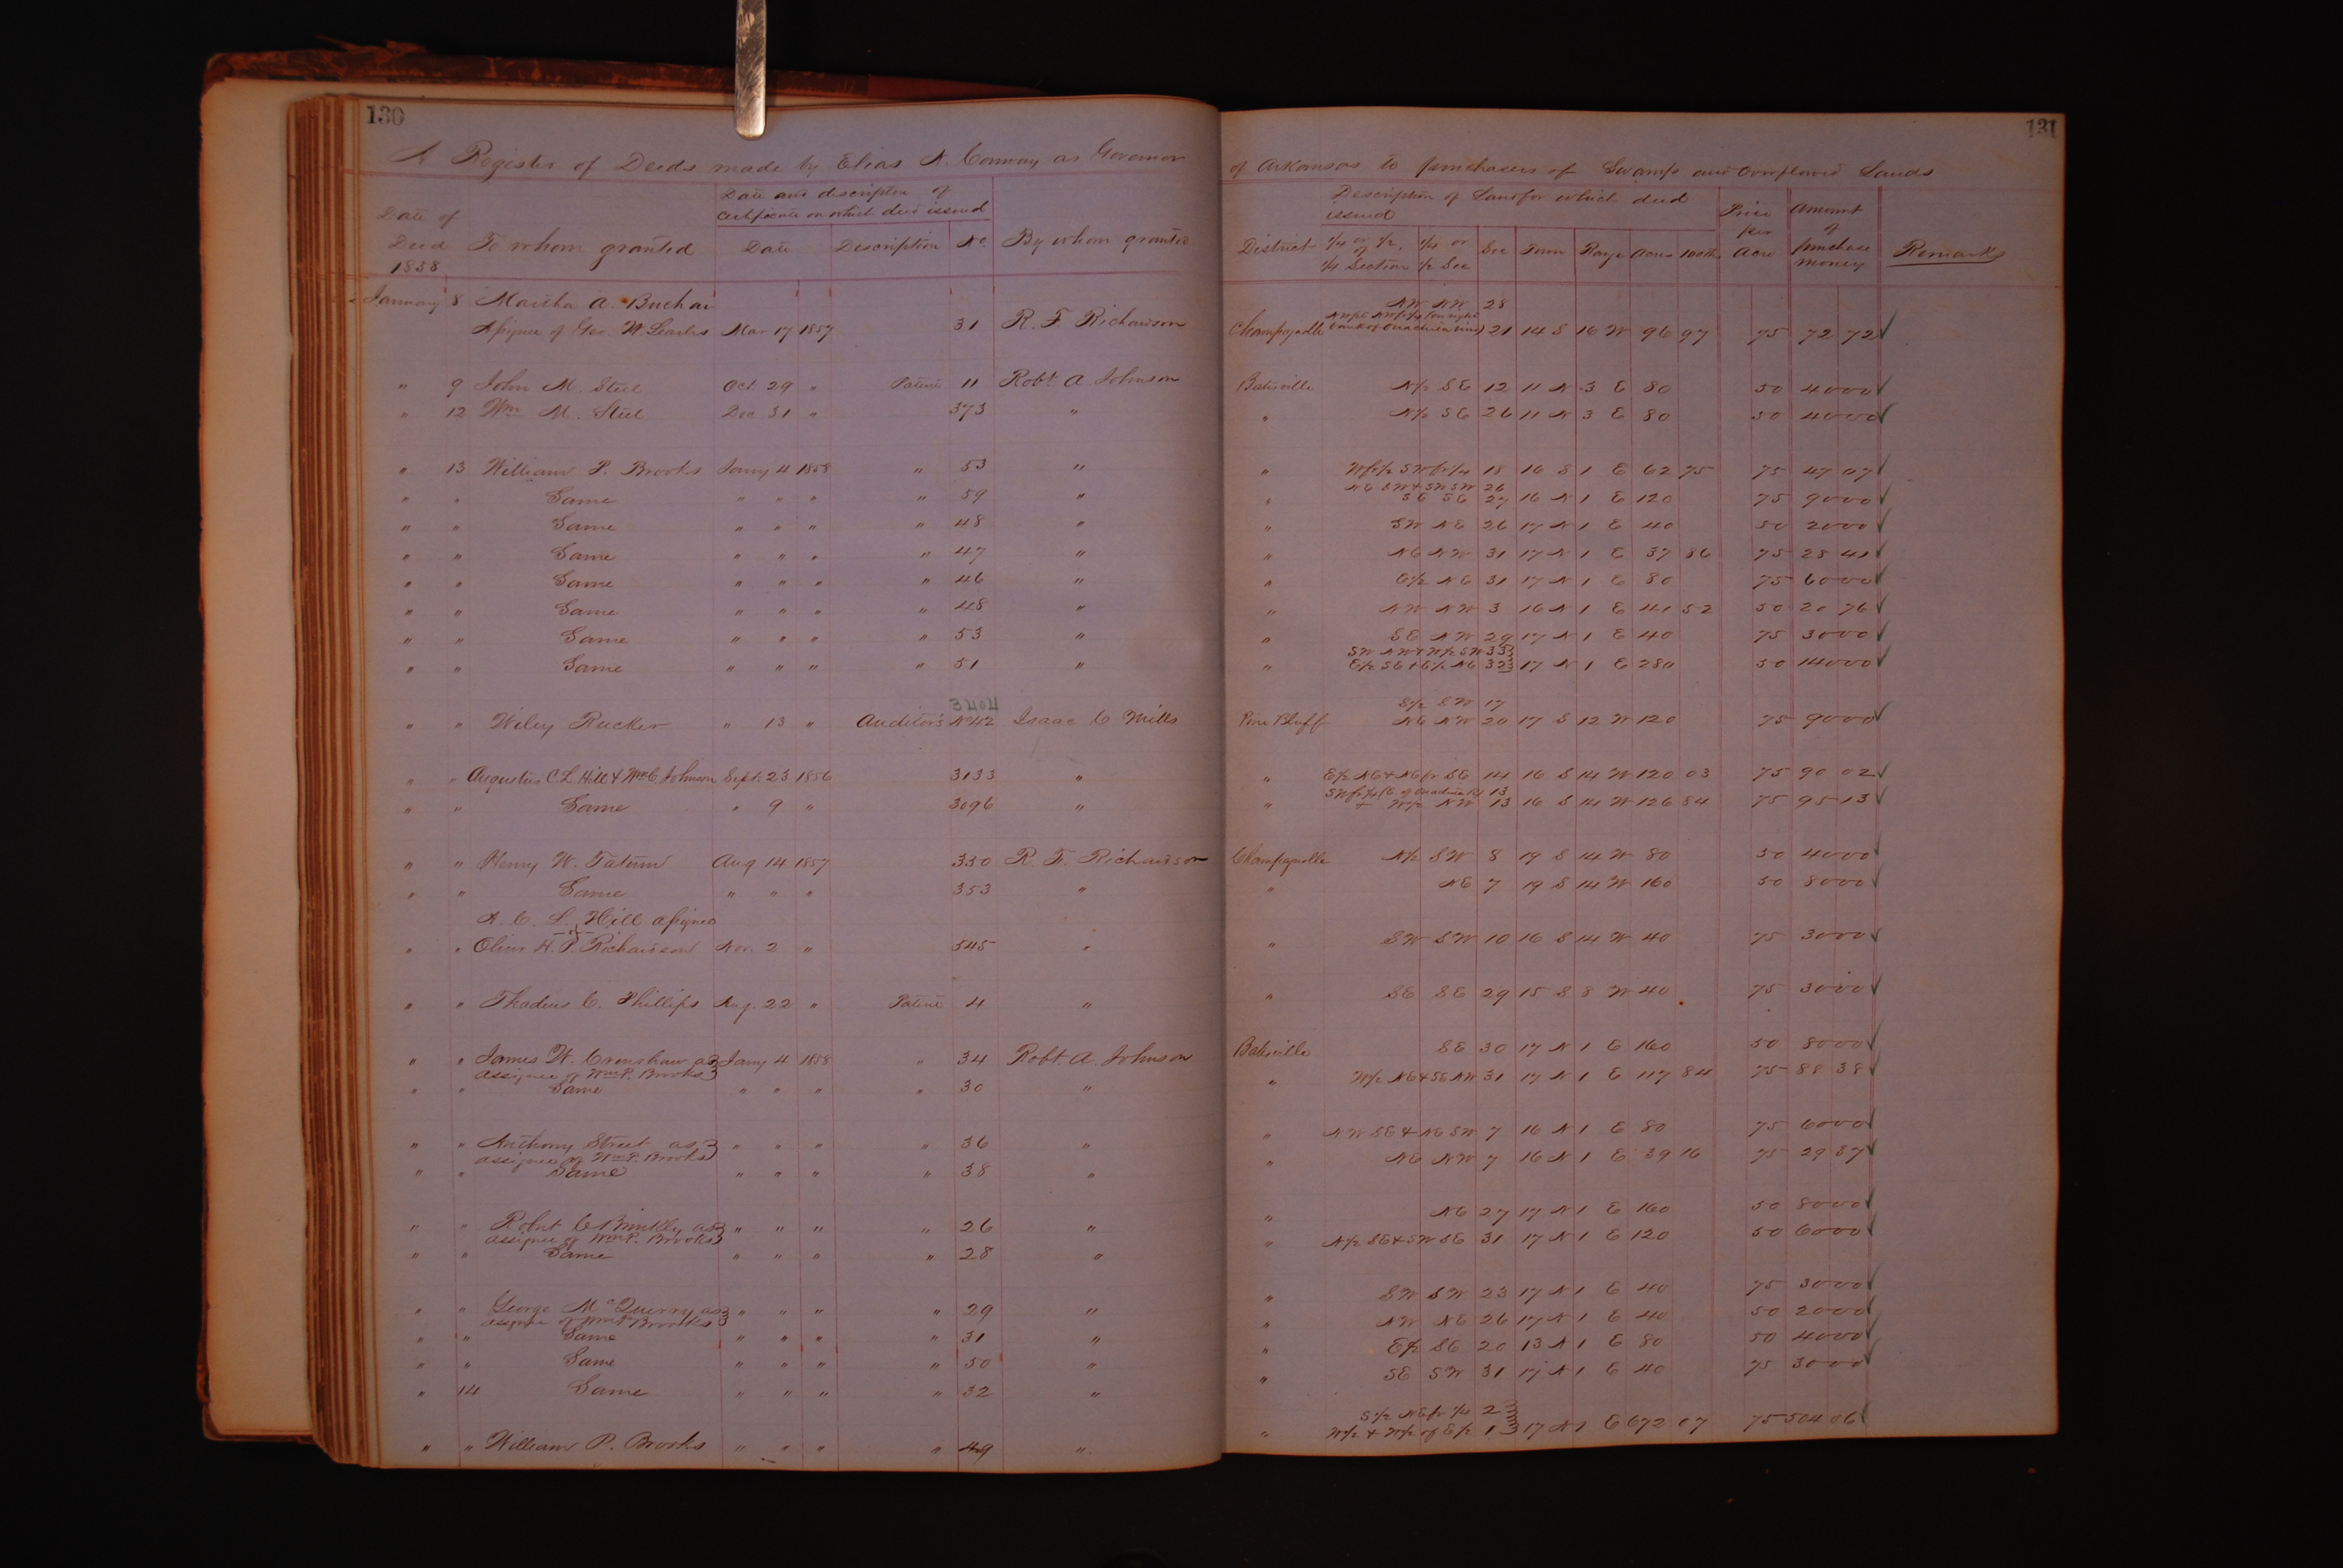 130
A Register of Deeds made by Elias N. Conway as Governor
Date of Deed 1858 To whom granted Date and description of certificate on which deed issued Date Description No. By whom granted
January 8 Martha A. Buchan
Assignee of Geo. W. Searles Mar 17 1857 31 R. F. Richardson
" 9 John M. Steel Oct. 29 " Patent 11 Robt. A Johnson
" 12 Wm M. Steel Dec 31 " 373 "
" 13 William P. Brooks Jany 4 1858 " 53 "
" " Same " " " " 59 "
" " Same " " " " 48 "
" " Same " " " " 47 "
" " Same " " " " 46 "
" " Same " " " " 48 "
" " Same " " " " 53 "
" " Same " " " " 51 "
3404
" " Wiley Rucker " 13 " Auditor's No 42 Isaac C Mills
" " Augustus C L Hill & Wm C. Johnson Sept. 23 1856 3133 "
" " Same " 9 " 3096 "
" " Henry W. Tatum Aug 14 1857 330 R. F. Richardson
" " Same " " " 353 "
A. C. L. Hill assignee
of
" " Oliver H. P. Richardson Nov. 2 " 545 "
" " Thadeus C. Phillips Aug. 22 " Patent 4 "
" " James W. Crenshaw as Jany 4 1858 " 34 Robt. A. Johnson
assignee of Wm P. Brooks
" " Same " " " " 30 "
" " Anthony Street as " " " " 36 "
assignee of Wm P. Brooks
" " Same " " " " 38 "
" " Robert C Brinkly as " " " " 26 "
assignee of Wm P. Brooks
" " Same " " " " 28 "
" " George McQuerry as " " " " 29 "
assignee of Wm P Brooks
" " Same " " " " 31 "
" " Same " " " " 50 "
" 14 Same " " " " 32 "
" " William P. Brooks " " " " 49 "
131
of Arkansas to purchasers of Swamp and Overflowed Lands
Description of Land for which deed issued
District 1/4 or 1/2 of 1/4 Section 1/4 or 1/2 Sec Sec Town Range Acres 100ths Price per Acre Amount of purchase money Remarks
NW NW 28
Champagnolle 21 14 S 16 W 96 97 75 72 72
Batesville N/2 SE 12 11 N 3 E 80 50 40 00
" N/2 SE 26 11 N 3 E 80 50 40 00
" W fr/2 SW fr/4 18 16 S 1 E 62 75 75 47 07
NE SW & SW SW 26
" SE SE 27 16 N 1 E 120 75 90 00
" SW NE 26 17 N 1 E 40 50 20 00
" NE NW 31 17 N 1 E 37 86 75 28 41
" E/2 NE 31 17 N 1 E 80 75 60 00
" NW NW 3 16 N 1 E 41 52 50 20 76
" SE NW 29 17 N 1 E 40 75 30 00
SW NW & W/2 SW 33
" E/2 SE & E/2 NE 32 17 N 1 E 280 50 140 00
S/2 SW 17
Pine Bluff NE NW 20 17 S 12 W 120 75 90 00
" E/2 NE & NE fr SE 14 16 S 14 W 120 03 75 90 02
SW fr/4 (E. of Ouachita R) 13
" + W/2 NW 13 16 S 14 W 126 84 75 95 13
Champagnolle N/2 SW 8 19 S 14 W 80 50 40 00
" NE 7 19 S 14 W 160 50 80 00
" SW SW 10 16 S 14 W 40 75 30 00
" SE SE 29 15 S 8 W 40 75 30 00
Batesville SE 30 17 N 1 E 160 50 80 00
" W/2 NE & SE NW 31 17 N 1 E 117 84 75 88 38
" NW SE & NE SW 7 16 N 1 E 80 75 60 00
" NE NW 7 16 N 1 E 39 16 75 29 37
" NE 27 17 N 1 E 160 50 80 00
" N/2 SE & SW SE 31 17 N 1 E 120 50 60 00
" SW SW 23 17 N 1 E 40 75 30 00
" NW NE 26 17 N 1 E 40 50 20 00
" E/2 SE 20 13 N 1 E 80 50 40 00
" SE SW 31 17 N 1 E 40 75 30 00
S 1/2 NE fr 1/4 2
" W/2 & W/2 of E/2 1 17 N 1 E 672 07 75 504 06